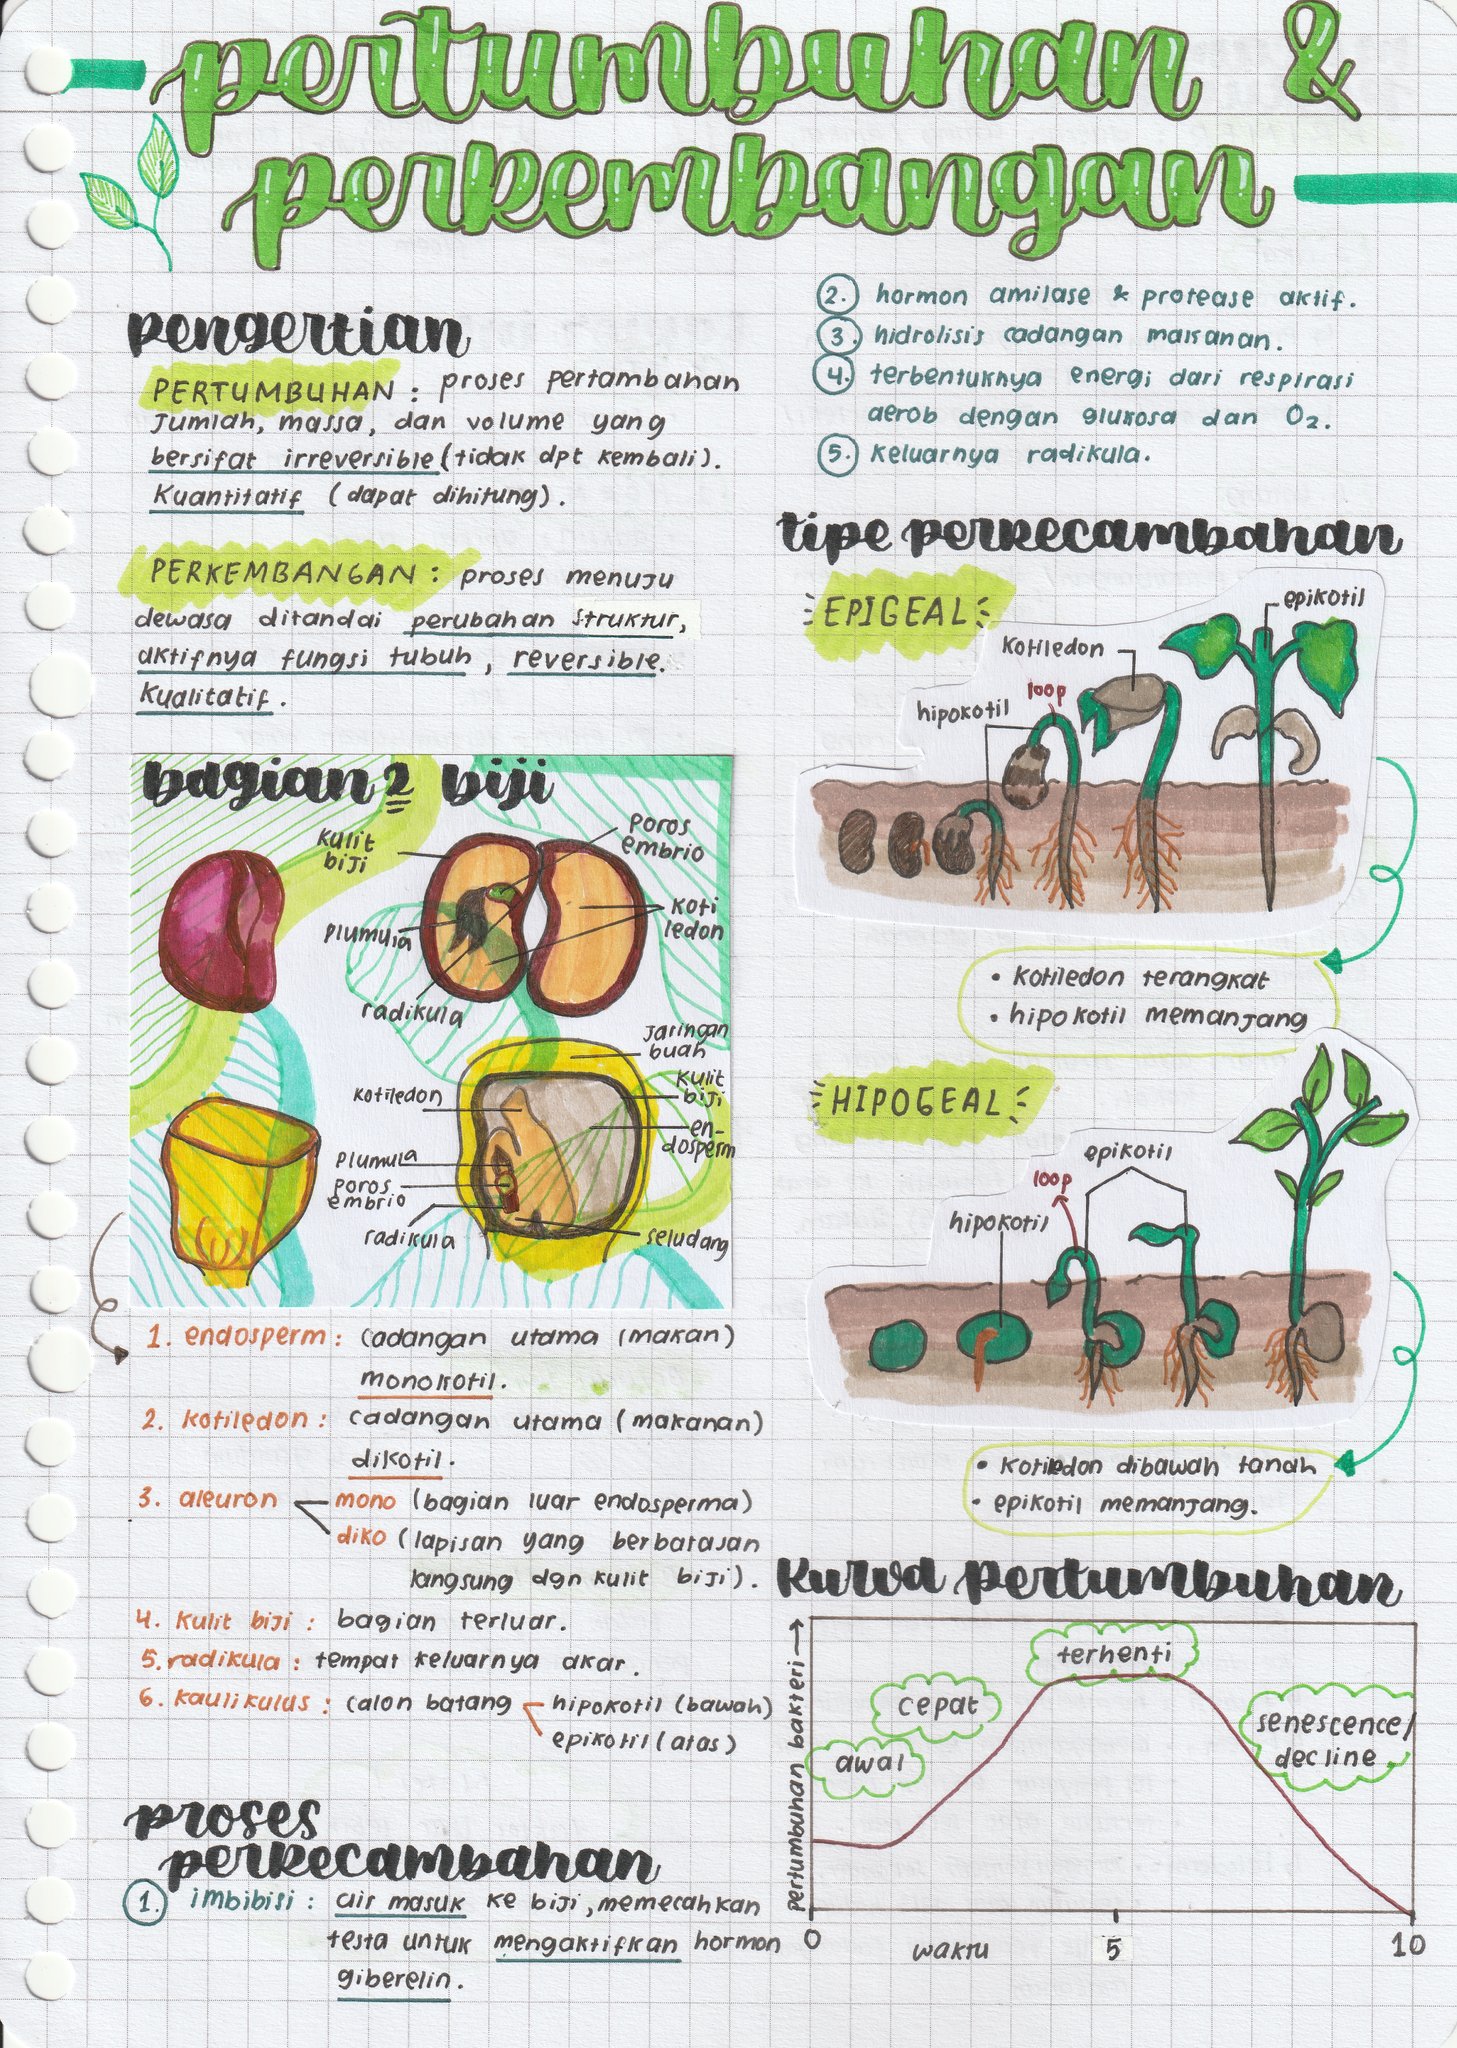 pertumbuhan &
perkembangan
pengertian
PERTUMBUHAN : proses pertambahan
Jumlah, massa, dan volume yang
bersifat irreversible (tidak dpt kembali).
Kuantitatif (dapat dihitung).
PERKEMBANGAN : proses menuju
dewasa ditandai perubahan struktur,
aktifnya fungsi tubuh, reversible.
Kualitatif.
bagian2 biji
Kulit
biji
poros
embrio
plumula
koti
ledon
radikula
Jaringan
buah
kotiledon
kulit
biji
en-
dosperm
plumula
poros
embrio
radikula
seludang
1. endosperm : cadangan utama (makan)
monokotil.
2. kotiledon : cadangan utama (makanan)
dikotil.
3. aleuron mono (bagian luar endosperma)
diko (lapisan yang berbatasan
langsung dgn kulit biji).
4. Kulit biji : bagian terluar.
5. radikula : tempat keluarnya akar.
6. kaulikulus : calon batang hipokotil (bawah)
epikotil (atas)
proses
perkecambahan
1. imbibisi : air masuk ke biji, memecahkan
testa untuk mengaktifkan hormon
giberelin.
2. hormon amilase & protease aktif.
3. hidrolisis cadangan makanan.
4. terbentuknya energi dari respirasi
aerob dengan glukosa dan O₂.
5. keluarnya radikula.
tipe perkecambahan
EPIGEAL
epikotil
kotiledon
loop
hipokotil
• kotiledon terangkat
• hipokotil memanjang
HIPOGEAL
epikotil
loop
hipokotil
• kotiledon dibawah tanah
• epikotil memanjang.
Kurva pertumbuhan
pertumbuhan bakteri →
terhenti
cepat
senescence/
decline
awal
0 waktu 5 10